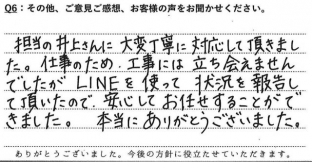 Q6：その他、ご意見ご感想、お客様の声をお聞かせください。
担当の井上さんに 大変丁寧に対応して頂きまし
た。仕事のため、工事には立ち会えません
でしたが LINEを使って 状況を報告し
て頂いたので、安心してお任せすることがで
きました。 本当にありがとうございました。
ありがとうございました。今後の方針に役立たせていただきます。